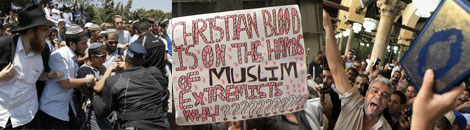 CHRISTIAN BLOOD
IS ON THE HANDS
OF MUSLIM
EXTREMISTS
WHY????????????